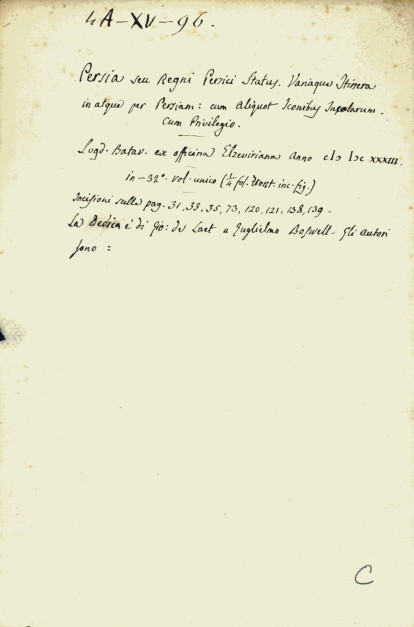 4A-XV-96.
Persia seu Regni Persici Status. Variaque Itinera
in atque per Persiam: cum aliquot Iconibus Incolarum.
Cum Privilegio.
Lugd. Batav. ex officina Elzeviriana Anno cIɔ Iɔc XXXIII.
in-32º. vol. unico (1/4 fol. front. inc. fig.)
Incisioni sulle pag. 31, 33, 35, 73, 120, 121, 138, 139.
La Dedica è di Gio: de Laet a Guglielmo Boswell. Gli autori
sono:
C